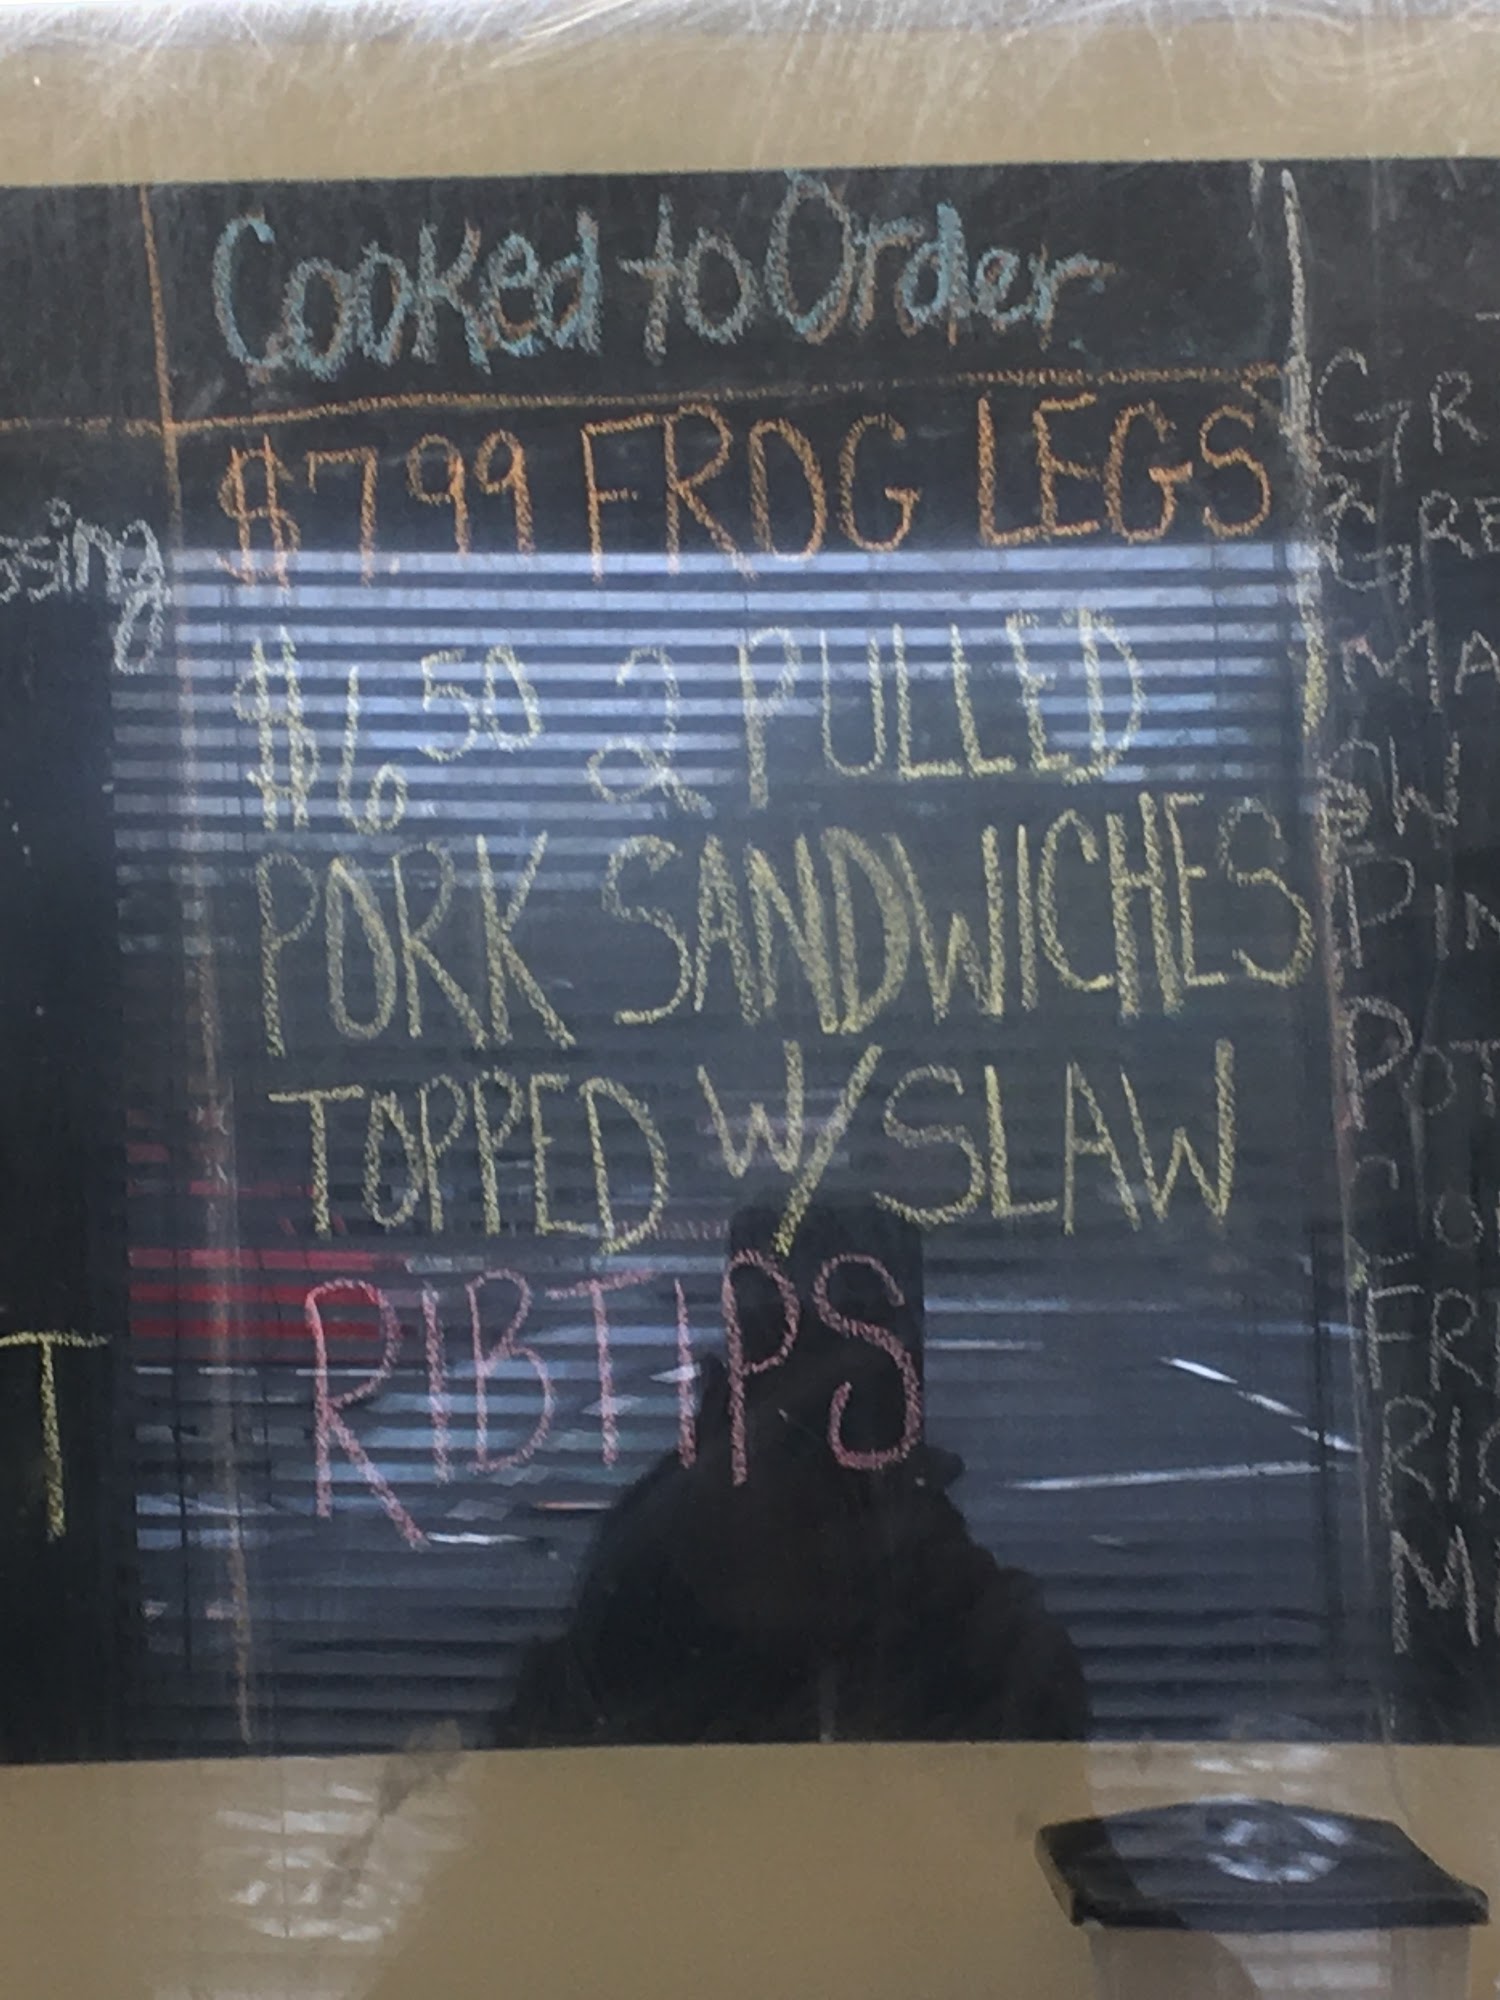 Cooked to Order
$7.99 FROG LEGS
$6.50 2 PULLED
PORK SANDWICHES
TOPPED W/SLAW
RIBTIPS
ssing
T
GR
GRE
MA
SW
PIN
POT
FRI
RIC